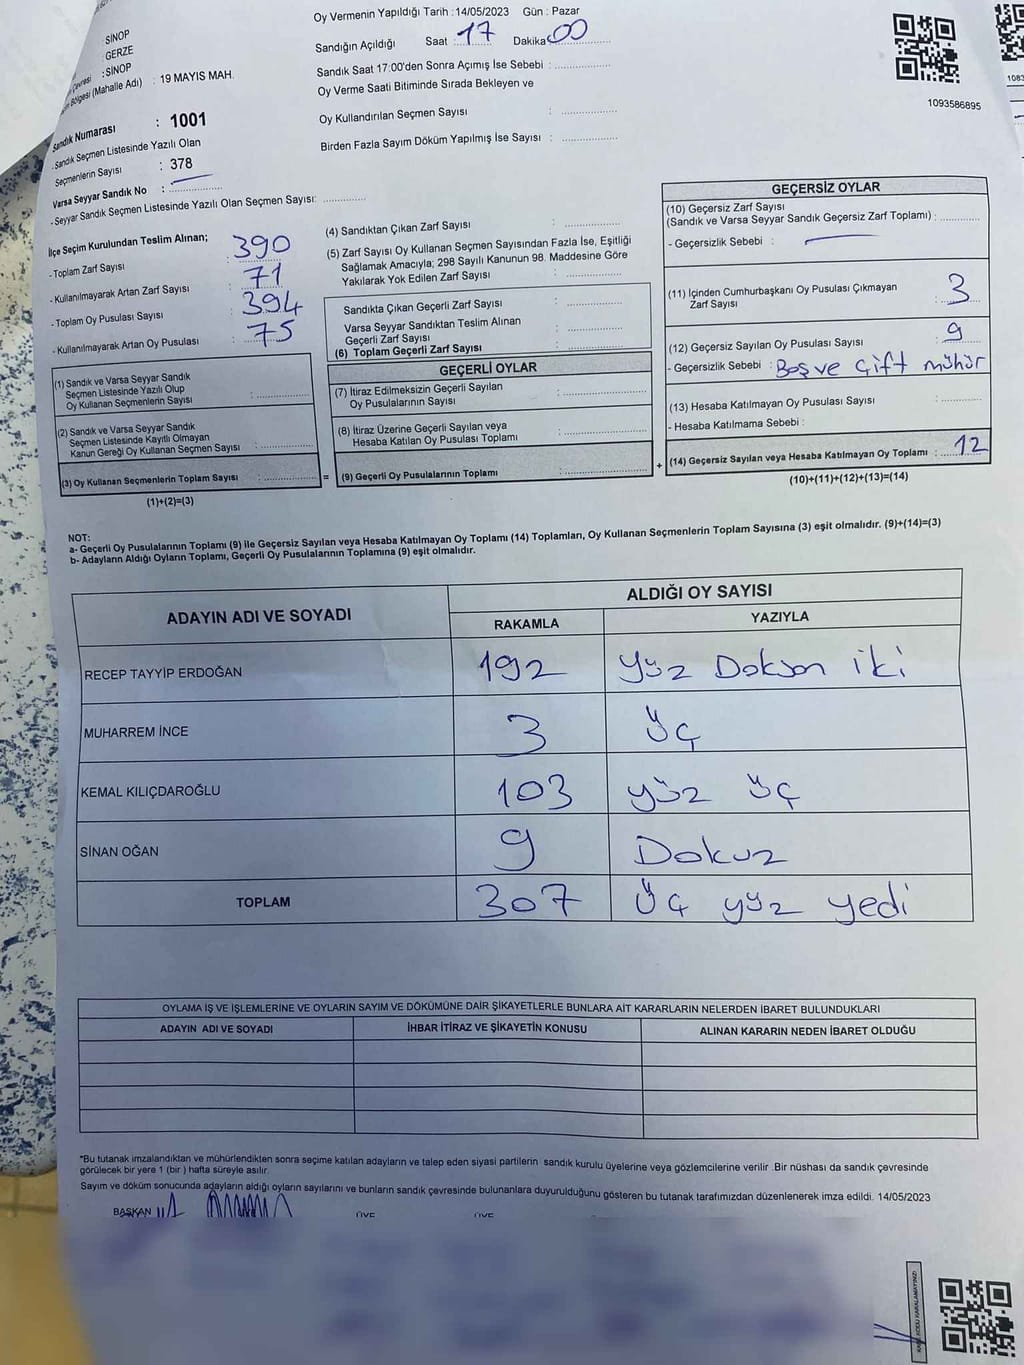 Oy Vermenin Yapıldığı Tarih : 14/05/2023 Gün : Pazar
SİNOP
: GERZE
: SİNOP
Bölgesi (Mahalle Adı) : 19 MAYIS MAH.
Sandık Numarası : 1001
Sandık Seçmen Listesinde Yazılı Olan
Seçmenlerin Sayısı : 378
Varsa Seyyar Sandık No :
- Seyyar Sandık Seçmen Listesinde Yazılı Olan Seçmen Sayısı:
Sandığın Açıldığı Saat : 17 Dakika 00
Sandık Saat 17:00'den Sonra Açımış İse Sebebi :
Oy Verme Saati Bitiminde Sırada Bekleyen ve
Oy Kullandırılan Seçmen Sayısı :
Birden Fazla Sayım Döküm Yapılmış İse Sayısı :
1093586895
1083
İlçe Seçim Kurulundan Teslim Alınan;
- Toplam Zarf Sayısı : 390
- Kullanılmayarak Artan Zarf Sayısı : 71
- Toplam Oy Pusulası Sayısı : 394
- Kullanılmayarak Artan Oy Pusulası : 75
(1) Sandık ve Varsa Seyyar Sandık
Seçmen Listesinde Yazılı Olup
Oy Kullanan Seçmenlerin Sayısı :
(2) Sandık ve Varsa Seyyar Sandık
Seçmen Listesinde Kayıtlı Olmayan
Kanun Gereği Oy Kullanan Seçmen Sayısı :
(3) Oy Kullanan Seçmenlerin Toplam Sayısı :
(1)+(2)=(3)
(4) Sandıktan Çıkan Zarf Sayısı :
(5) Zarf Sayısı Oy Kullanan Seçmen Sayısından Fazla İse, Eşitliği
Sağlamak Amacıyla; 298 Sayılı Kanunun 98. Maddesine Göre
Yakılarak Yok Edilen Zarf Sayısı :
Sandıkta Çıkan Geçerli Zarf Sayısı :
Varsa Seyyar Sandıktan Teslim Alınan
Geçerli Zarf Sayısı :
(6) Toplam Geçerli Zarf Sayısı :
GEÇERLİ OYLAR
(7) İtiraz Edilmeksizin Geçerli Sayılan
Oy Pusulalarının Sayısı :
(8) İtiraz Üzerine Geçerli Sayılan veya
Hesaba Katılan Oy Pusulası Toplamı :
= (9) Geçerli Oy Pusulalarının Toplamı :
GEÇERSİZ OYLAR
(10) Geçersiz Zarf Sayısı
(Sandık ve Varsa Seyyar Sandık Geçersiz Zarf Toplamı) :
- Geçersizlik Sebebi :
(11) İçinden Cumhurbaşkanı Oy Pusulası Çıkmayan
Zarf Sayısı : 3
(12) Geçersiz Sayılan Oy Pusulası Sayısı : 9
- Geçersizlik Sebebi : Boş ve Çift mühür
(13) Hesaba Katılmayan Oy Pusulası Sayısı :
- Hesaba Katılmama Sebebi :
+ (14) Geçersiz Sayılan veya Hesaba Katılmayan Oy Toplamı : 12
(10)+(11)+(12)+(13)=(14)
NOT:
a- Geçerli Oy Pusulalarının Toplamı (9) ile Geçersiz Sayılan veya Hesaba Katılmayan Oy Toplamı (14) Toplamları, Oy Kullanan Seçmenlerin Toplam Sayısına (3) eşit olmalıdır. (9)+(14)=(3)
b- Adayların Aldığı Oyların Toplamı, Geçerli Oy Pusulalarının Toplamına (9) eşit olmalıdır.
ADAYIN ADI VE SOYADI ALDIĞI OY SAYISI
RAKAMLA YAZIYLA
RECEP TAYYİP ERDOĞAN 192 Yüz Doksan iki
MUHARREM İNCE 3 üç
KEMAL KILIÇDAROĞLU 103 yüz üç
SİNAN OĞAN 9 Dokuz
TOPLAM 307 üç yüz yedi
OYLAMA İŞ VE İŞLEMLERİNE VE OYLARIN SAYIM VE DÖKÜMÜNE DAİR ŞİKAYETLERLE BUNLARA AİT KARARLARIN NELERDEN İBARET BULUNDUKLARI
ADAYIN ADI VE SOYADI İHBAR İTİRAZ VE ŞİKAYETİN KONUSU ALINAN KARARIN NEDEN İBARET OLDUĞU
*Bu tutanak imzalandıktan ve mühürlendikten sonra seçime katılan adayların ve talep eden siyasi partilerin sandık kurulu üyelerine veya gözlemcilerine verilir .Bir nüshası da sandık çevresinde
görülecek bir yere 1 (bir ) hafta süreyle asılır.
Sayım ve döküm sonucunda adayların aldığı oyların sayılarını ve bunların sandık çevresinde bulunanlara duyurulduğunu gösteren bu tutanak tarafımızdan düzenlenerek imza edildi. 14/05/2023
BAŞKAN ÜYE ÜYE